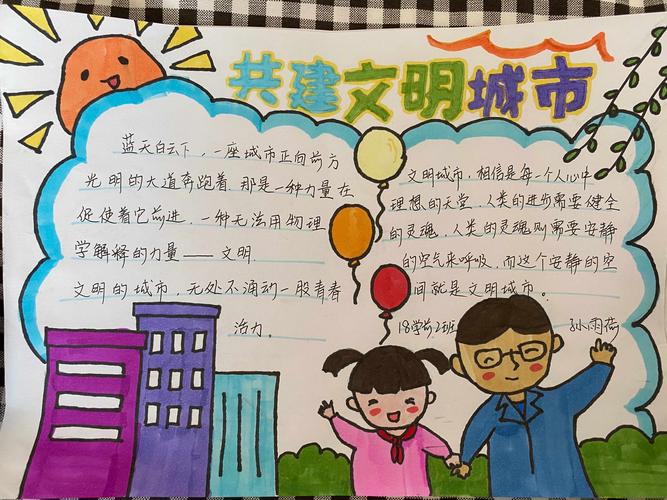 共建文明城市
蓝天白云下，一座城市正向前方
光明的大道奔跑着.那是一种力量在
促使着它前进.一种无法用物理
学解释的力量——文明.
文明的城市，无处不涌动一股青春
活力.
文明城市，相信是每一个人心中
理想的天堂.人类的进步需要健全
的灵魂，人类的灵魂则需要安静
的空气来呼吸.而这个安静的空
间就是文明城市。
18学前2班 孙雨荷